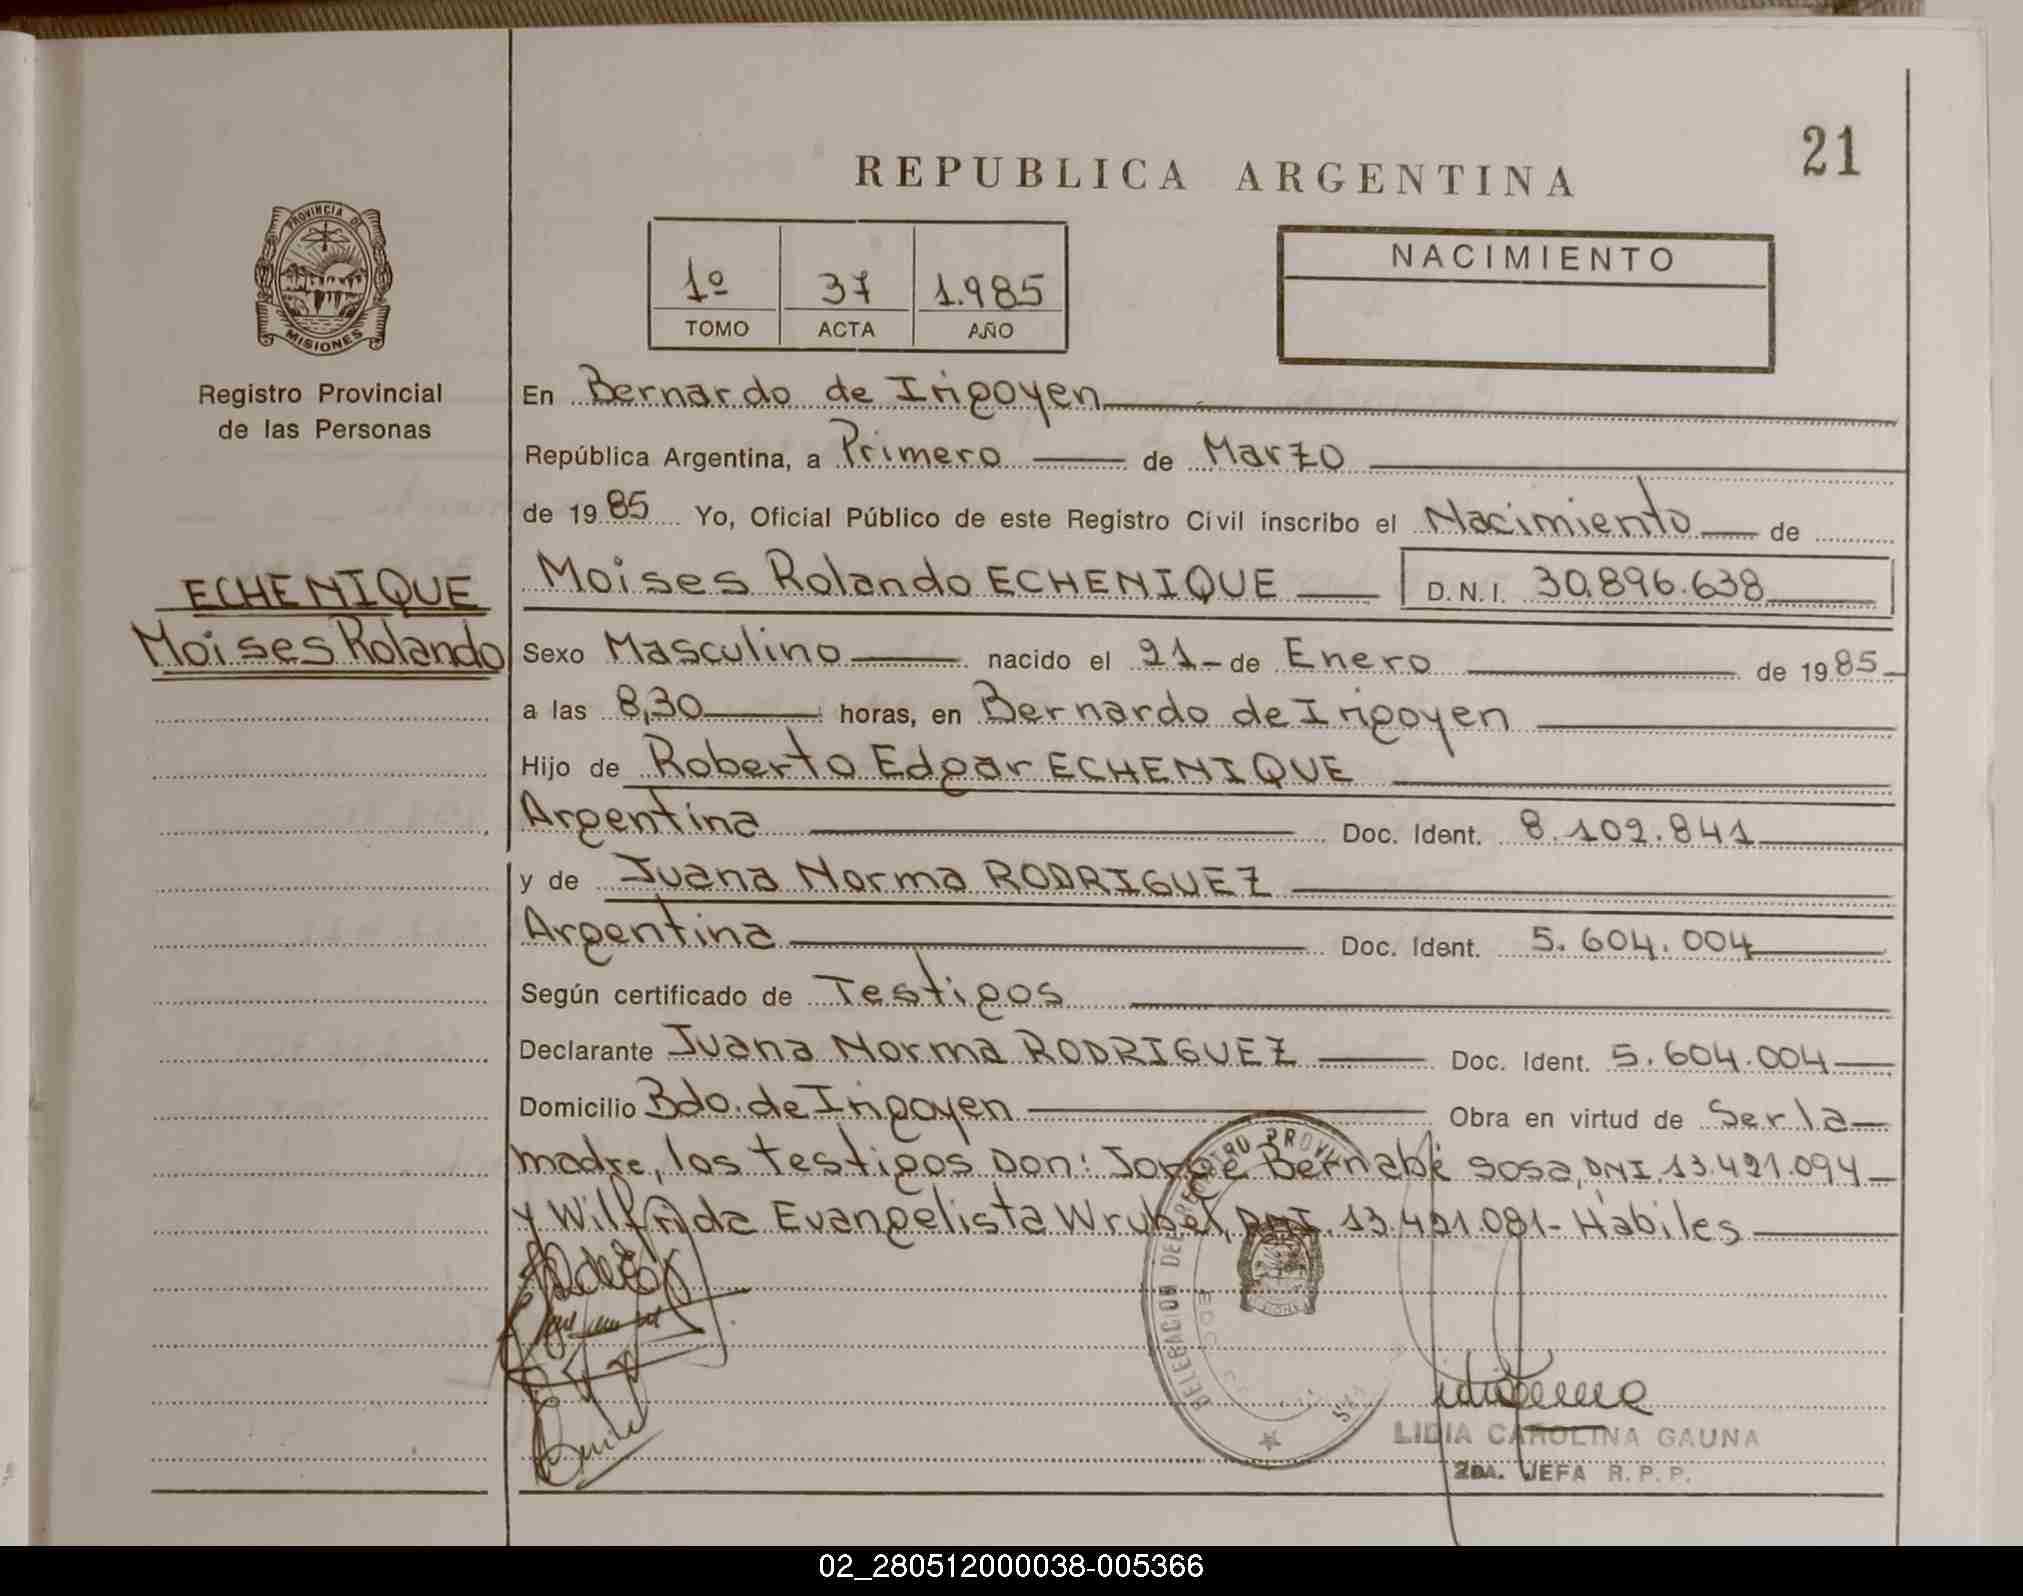 21
REPUBLICA ARGENTINA
PROVINCIA DE
MISIONES
Registro Provincial
de las Personas
ECHENIQUE
Moises Rolando
1º 37 1.985
TOMO ACTA AÑO
NACIMIENTO
En Bernardo de Irigoyen
República Argentina, a Primero de Marzo
de 1985 Yo, Oficial Público de este Registro Civil inscribo el Nacimiento de
Moises Rolando ECHENIQUE D.N.I. 30.896.638
Sexo Masculino nacido el 21 de Enero de 1985
a las 8,30 horas, en Bernardo de Irigoyen
Hijo de Roberto Edgar ECHENIQUE
Argentina Doc. Ident. 8.102.841
y de Juana Norma RODRIGUEZ
Argentina Doc. Ident. 5.604.004
Según certificado de Testigos
Declarante Juana Norma RODRIGUEZ Doc. Ident. 5.604.004
Domicilio Bdo. de Irigoyen Obra en virtud de Ser la
madre, los testigos Don: Jorge Bernabé Sosa, DNI. 13.421.094
y Wilfrida Evangelista Wrubel, DNI. 13.421.081 - Hábiles
LIDIA CAROLINA GAUNA
2DA. JEFA R.P.P.
02_280512000038-005366